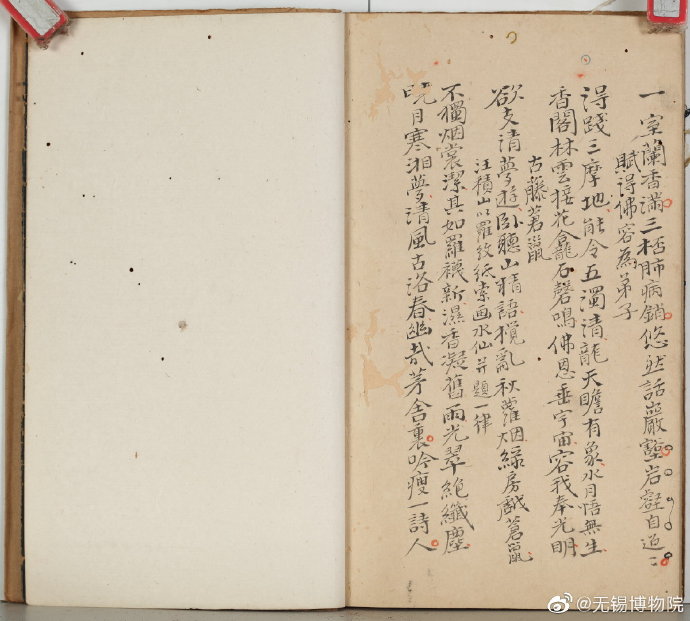 一室蘭香滿三桮肺病銷悠然話巖壑岩壑自迢:
賦得佛容為弟子
得踐三摩地能令五濁清龍天瞻有象水月悟無生
香閣林雲接花龕石磬鳴佛恩垂宇宙容我奉光明
古藤蒼鼠
欲支清夢遊卧聽山精語攪亂秋蘿烟緑房戲蒼鼠
汪積山以羅紋紙索画水仙并題一律
不獨烟裳潔其如羅襪新濕香凝舊雨光翠絕纖塵
皓月寒湘夢清風古洛春幽哉茅舍裏吟瘦一詩人
@无锡博物院